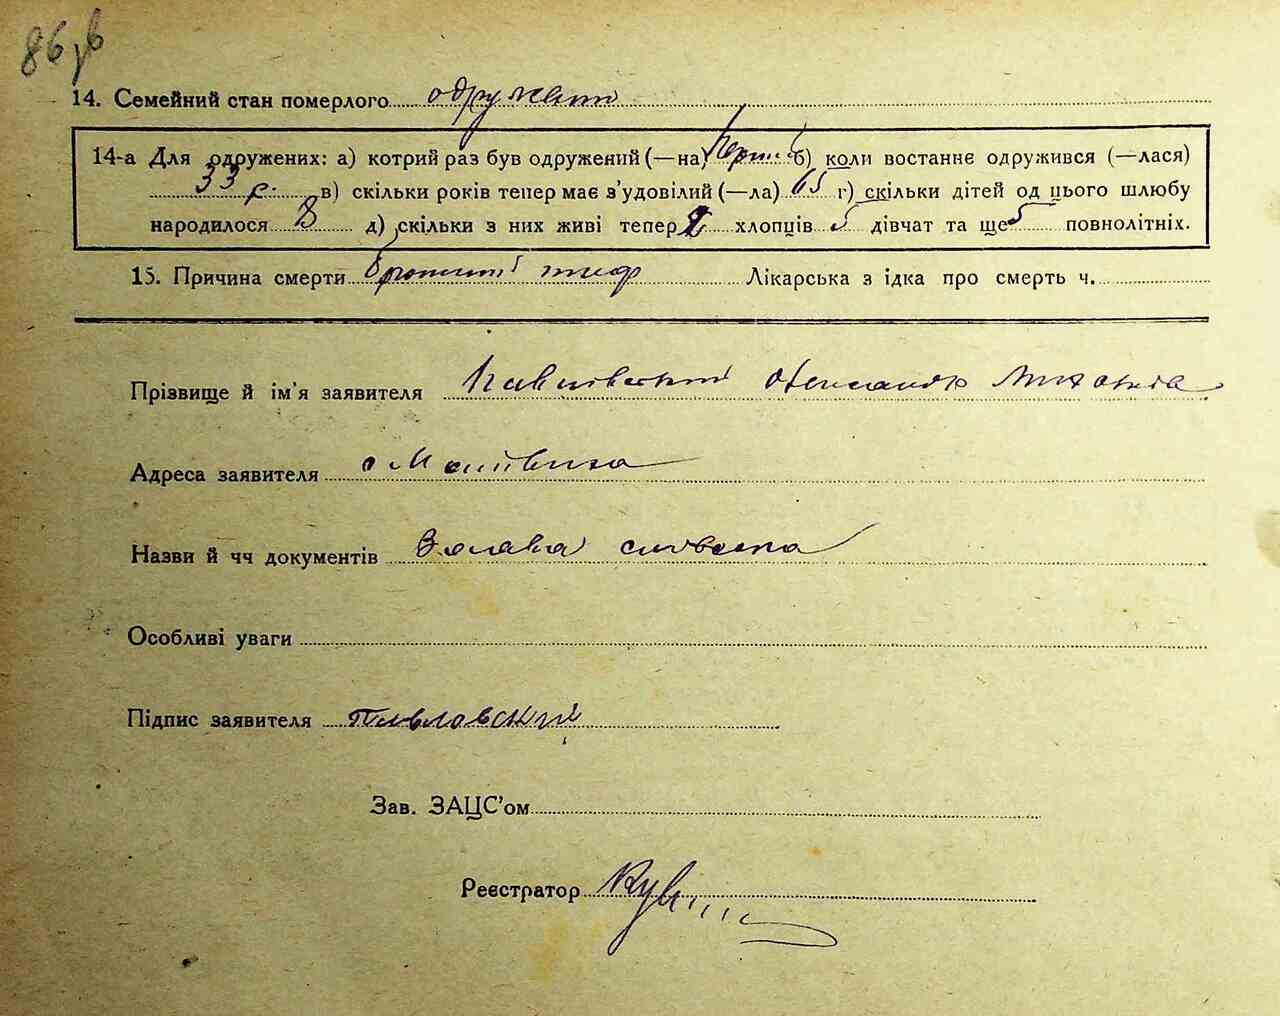 86 зв
14. Семейний стан померлого одружений
14-а Для одружених: а) котрий раз був одружений (—на) Перш. б) коли востаннє одружився (—лася)
33 р. в) скільки років тепер має з'удовілий (—ла) 65 г) скільки дітей од цього шлюбу
народилося 8 д) скільки з них живі тепер 2 хлопців 5 дівчат та ще 5 повнолітніх.
15. Причина смерти тиф Лікарська з ідка про смерть ч.
Прізвище й ім'я заявителя Павловский Олександр
Адреса заявителя с
Назви й чч документів Заява словесна
Особливі уваги
Підпис заявителя Павловский
Зав. ЗАЦС'ом
Реєстратор